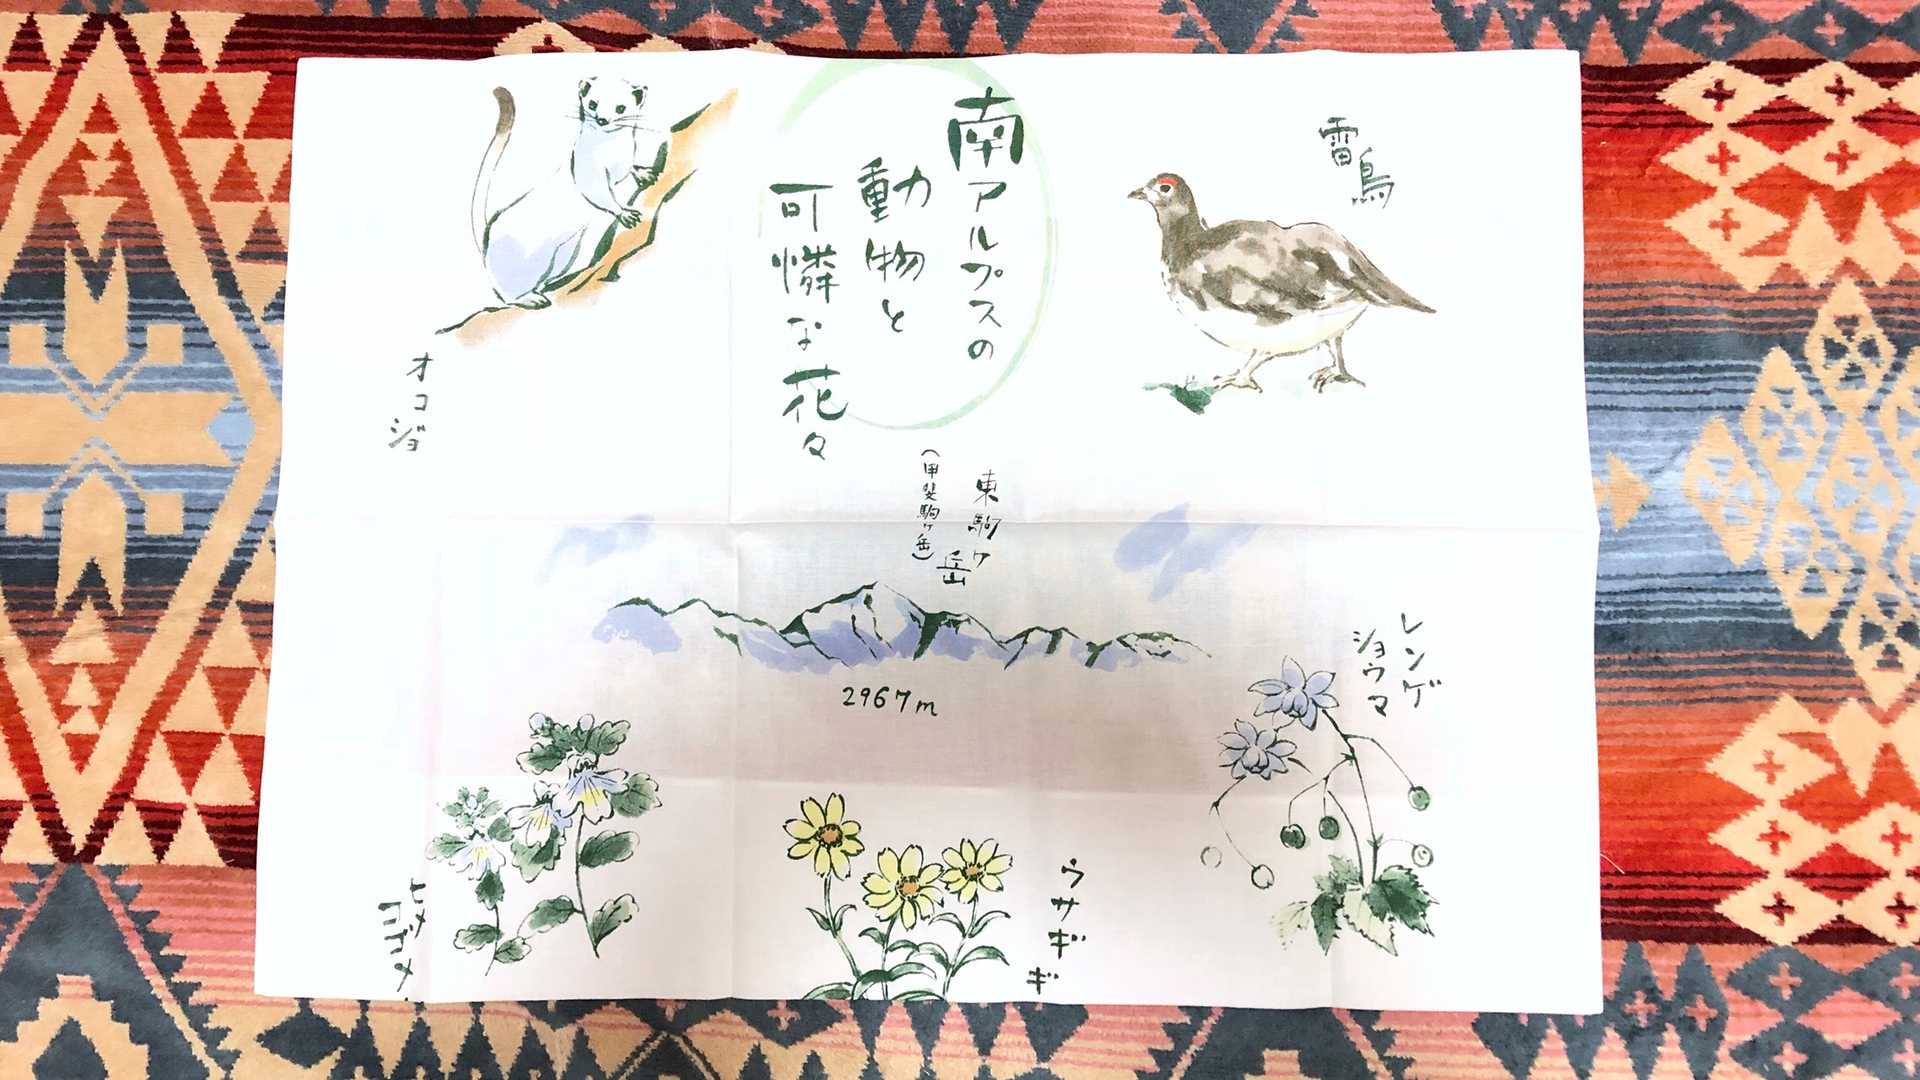 南アルプスの
動物と
可憐な花々
雷鳥
オコジョ
東駒ヶ岳
(甲斐駒ヶ岳)
2967m
レンゲ
ショウマ
ウサギギ
ヒメ
コゴメ